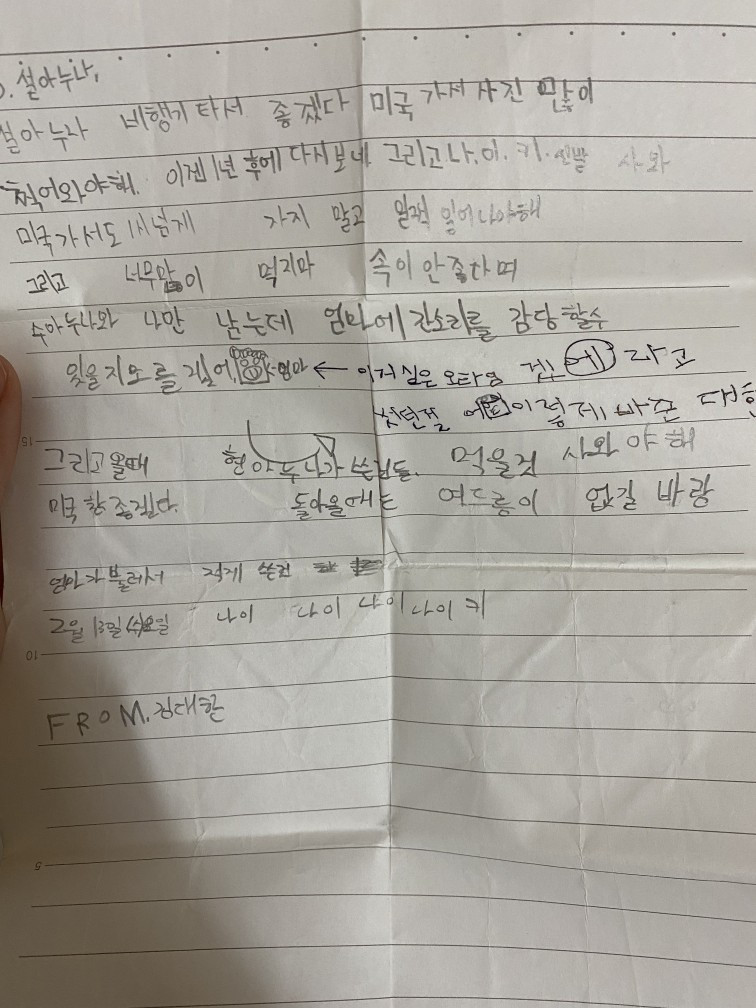 설아누나,
설아누나 비행기 타서 좋겠다 미국 가서 사진 많이
찍어와야해. 이젠 1년 후에 다시보네 그리고 나.이.키.신발 사와
미국가서도 1시넘게 가지 말고 일찍 일어나야해
그리고 너무많이 먹지마 속이 안좋다며
수아누나와 나만 남는데 엄마에 잔소리를 감당할수
있을지모를겄어. 엄마 ← 이거
에 라고
이렇게 바꾼
그리고올때 현아누나가 쓴것들. 먹을것 사와야해
미국 참 좋겠다. 돌아올때는 여드름이 없길 바랑
엄마가 불러서 적게 쓴건
2월 13일(수)요일 나이 나이 나이 나이키
FROM. 김대한
15
10
5